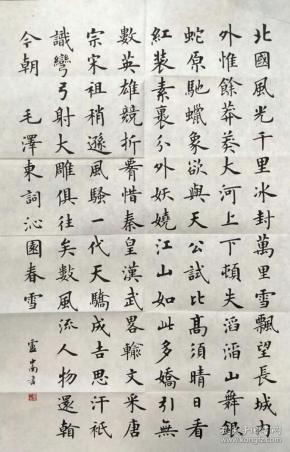 北國風光千里冰封萬里雪飄望長城内
外惟餘莽莽大河上下頓失滔滔山舞銀
蛇原馳蠟象欲與天公試比高須晴日看
紅装素裹分外妖嬈江山如此多嬌引無
數英雄競折腰惜秦皇漢武畧輸文采唐
宗宋祖稍遜風騷一代天驕成吉思汗衹
識彎弓射大雕俱往矣數風流人物還看
今朝 毛澤東詞沁園春雪 盧中南書